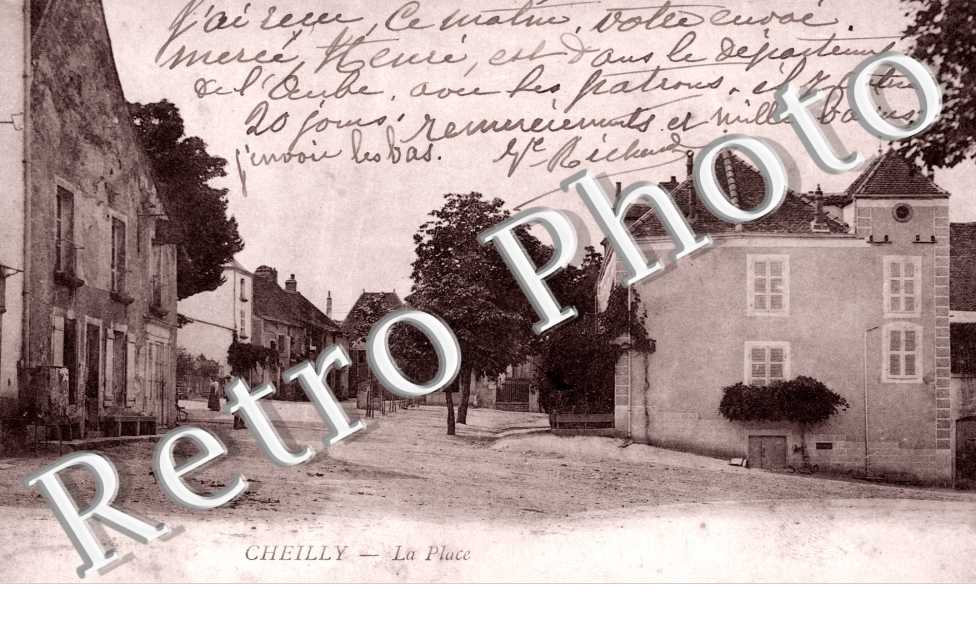 j'ai reçu, ce matin, votre envoi.
merci, Henri, est dans le département
de l'Aube, avec les patrons, il y
20 jours, remerciements et mille baisers
j'envoie les bas. Mce Richard
Retro Photo
CHEILLY — La Place